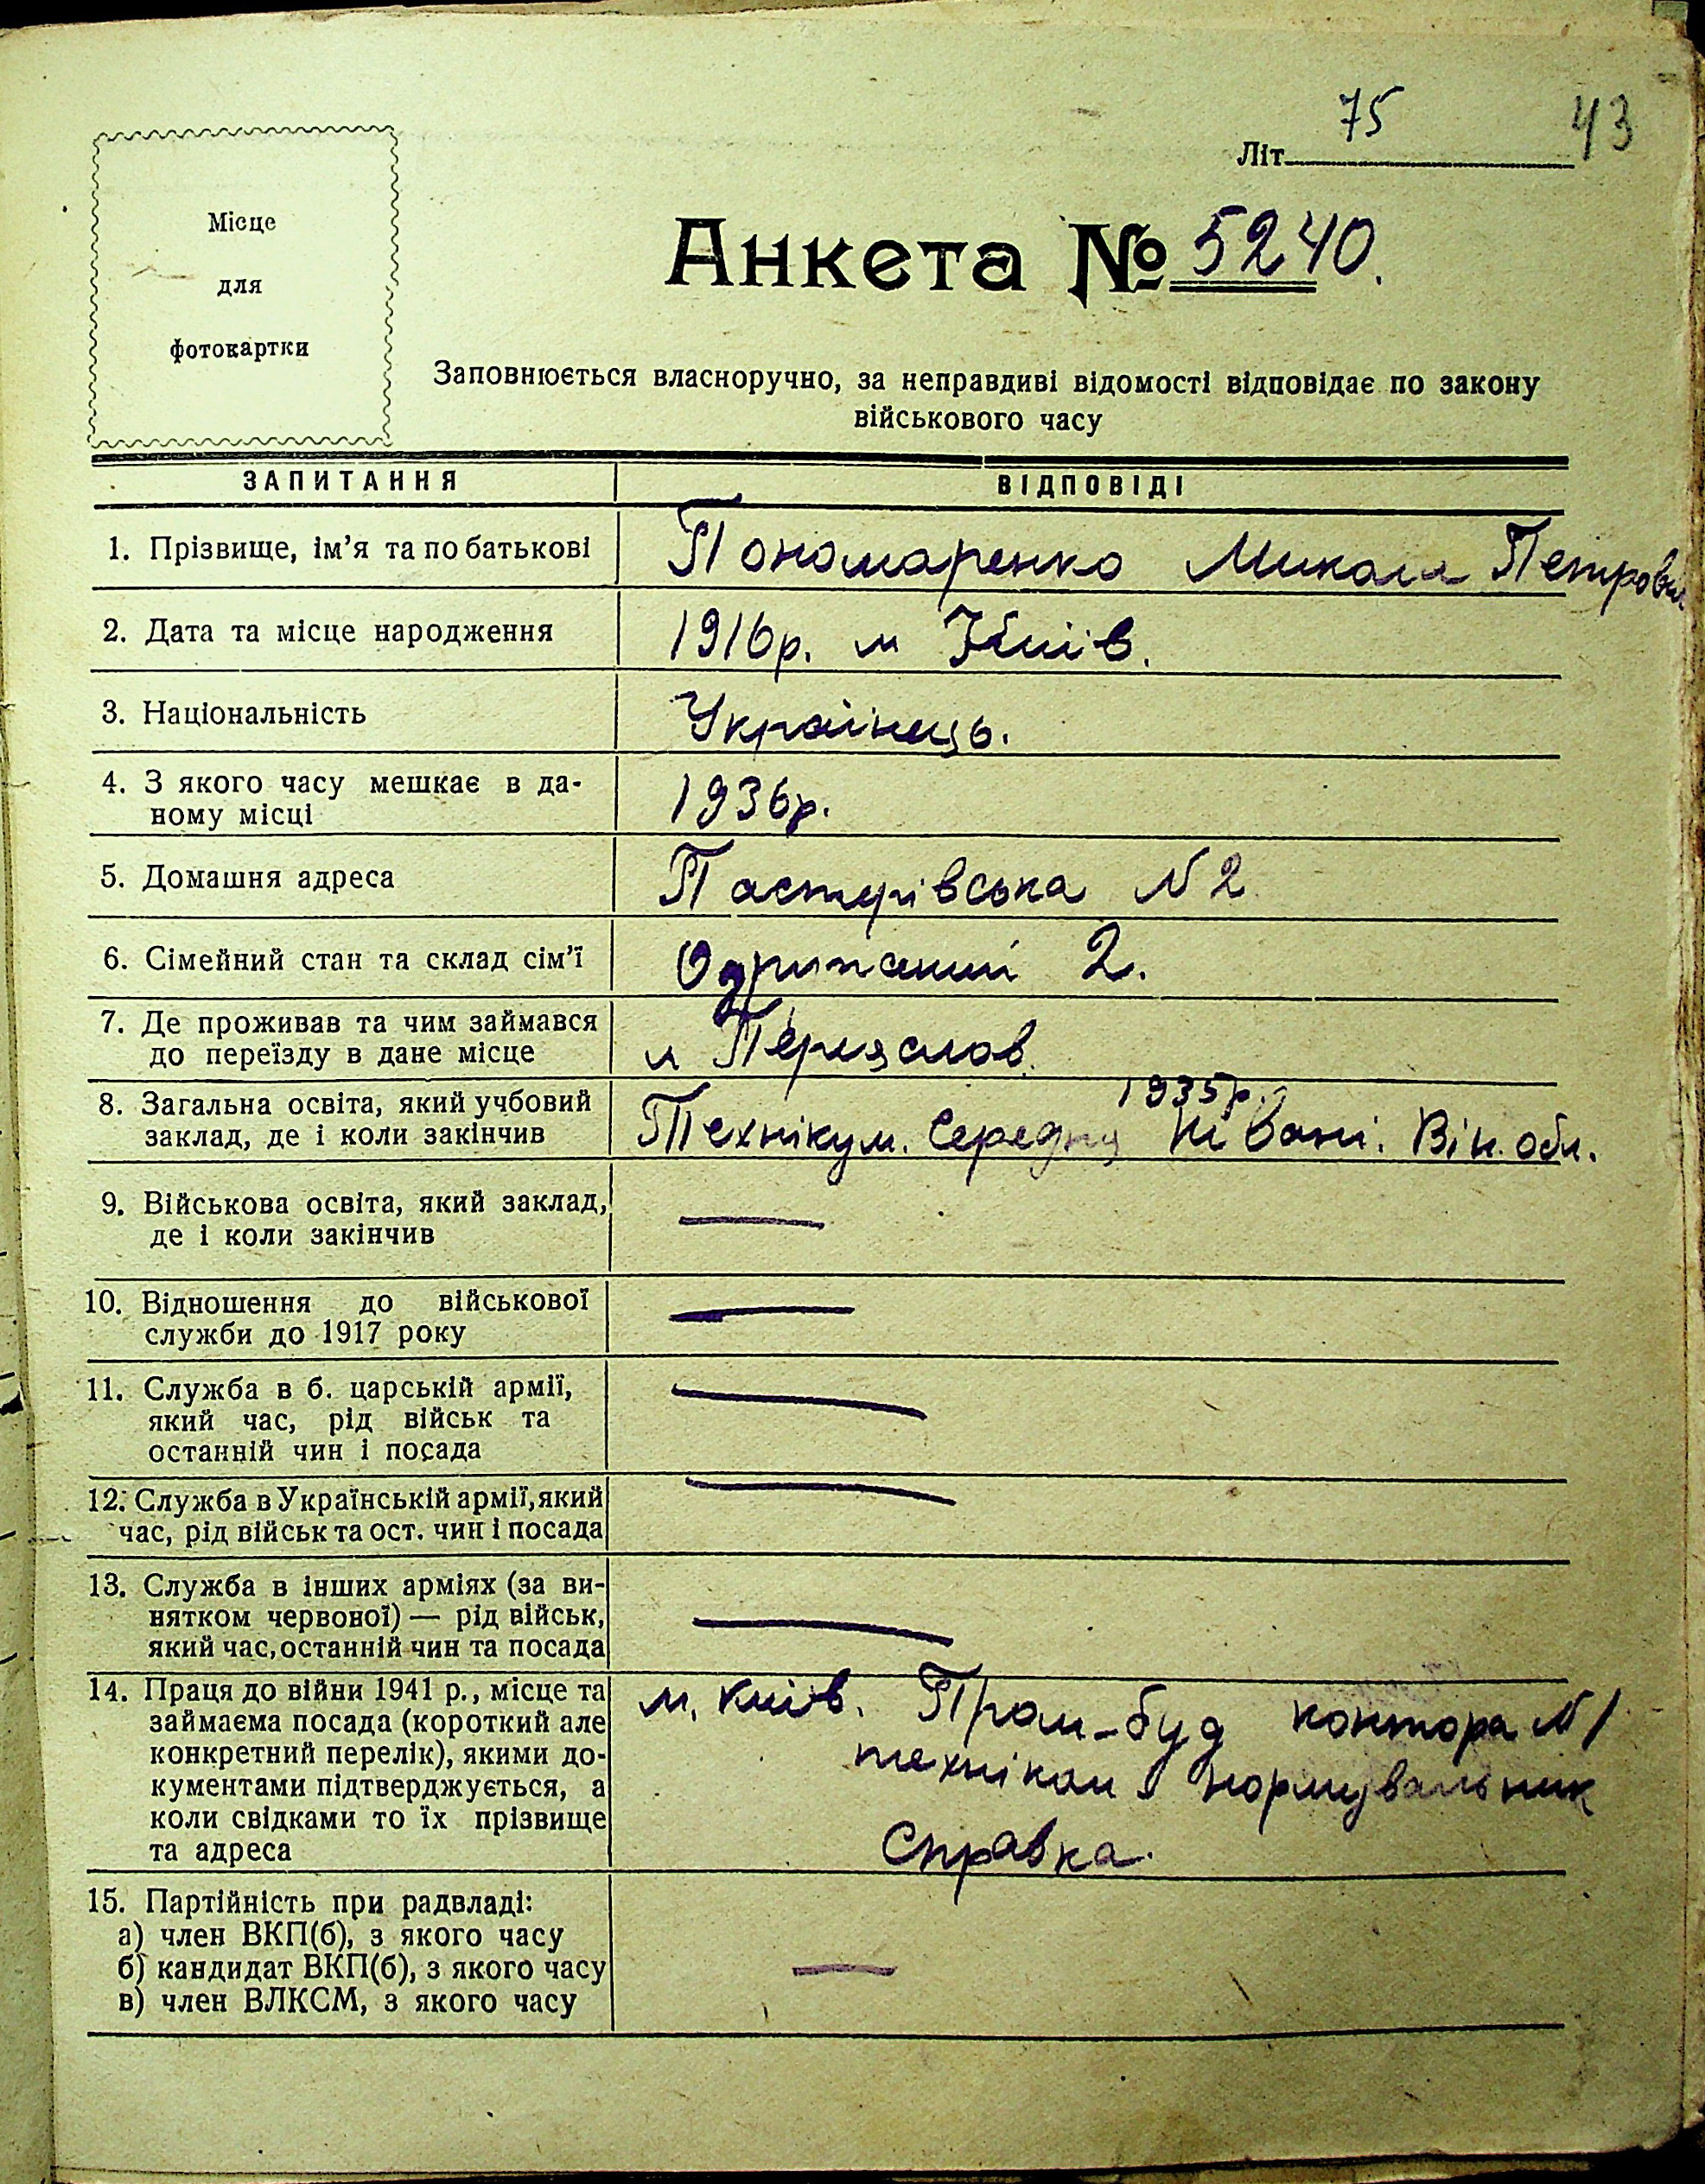 75
Літ. 43
Місце
для
фотокартки
Анкета № 5240.
Заповнюється власноручно, за неправдиві відомості відповідає по закону
військового часу
ЗАПИТАННЯ ВІДПОВІДІ
1. Прізвище, ім'я та по батькові Пономаренко Микола Петрович
2. Дата та місце народження 1916р. м Київ.
3. Національність Українець.
4. З якого часу мешкає в да-
ному місці 1936р.
5. Домашня адреса Пастерівська N 2
6. Сімейний стан та склад сім'ї Одружений 2.
7. Де проживав та чим займався
до переїзду в дане місце м Переяслов.
8. Загальна освіта, який учбовий
заклад, де і коли закінчив
1935р.
Технікум. Середня Він. обл.
9. Військова освіта, який заклад,
де і коли закінчив —
10. Відношення до військової
служби до 1917 року —
11. Служба в б. царській армії,
який час, рід військ та
останній чин і посада —
12. Служба в Українській армії, який
час, рід військ та ост. чин і посада —
13. Служба в інших арміях (за ви-
нятком червоної) — рід військ,
який час, останній чин та посада —
14. Праця до війни 1941 р., місце та
займаєма посада (короткий але
конкретний перелік), якими до-
кументами підтверджується, а
коли свідками то їх прізвище
та адреса
м. Київ. Пром-буд контора N 1
техніком нормувальник
Справка.
15. Партійність при радвладі:
а) член ВКП(б), з якого часу
б) кандидат ВКП(б), з якого часу —
в) член ВЛКСМ, з якого часу